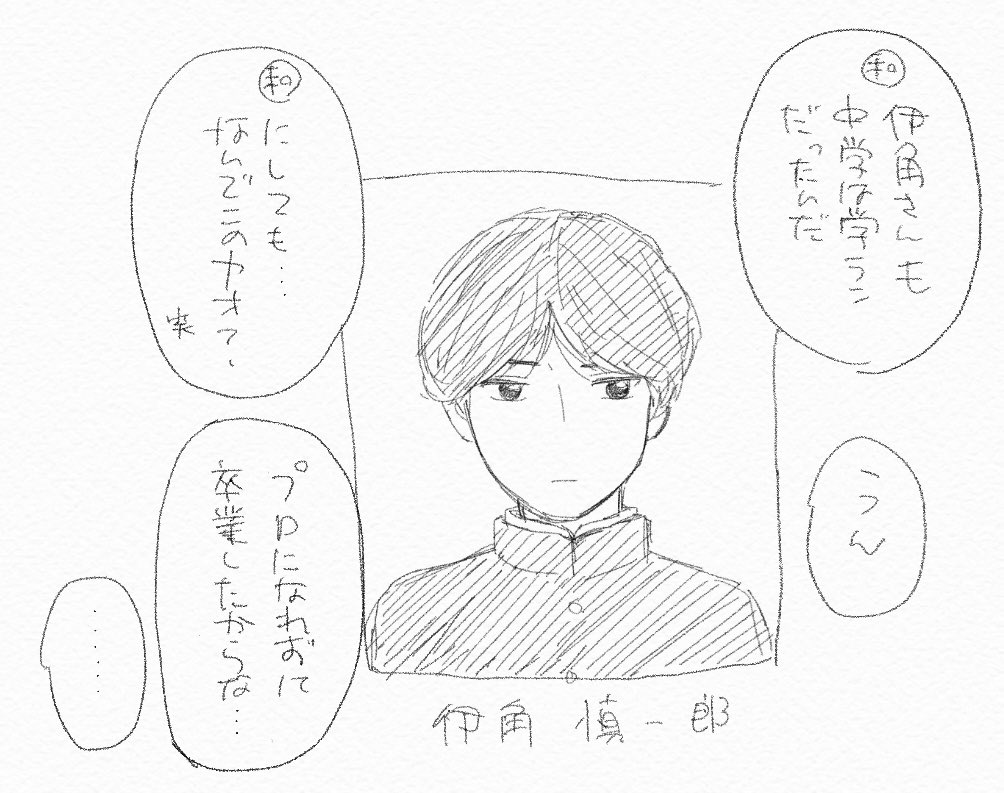 和
伊角さんも
中学は学ラン
だったんだ
うん
和
にしても…
なんでこのカオ?、
笑
プロになれずに
卒業したからな…
……
伊角 慎一郎